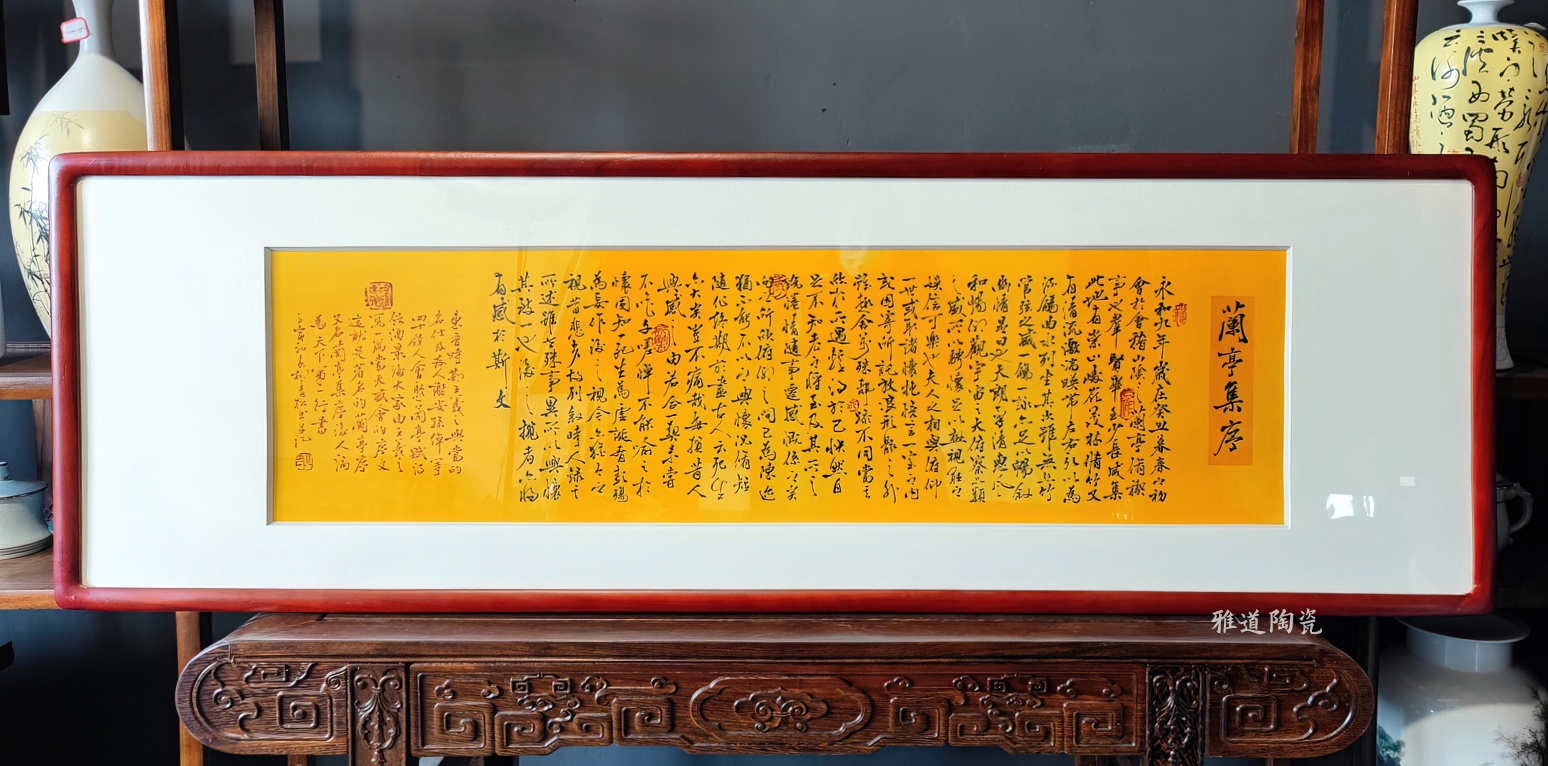 蘭亭集序
永和九年歲在癸丑暮春之初
會於會稽山陰之蘭亭脩禊
事也羣賢畢至少長咸集
此地有崇山峻嶺茂林脩竹又
有清流激湍暎帶左右引以為
流觴曲水列坐其次雖無絲竹
管弦之盛一觴一詠亦足以暢敘
幽情是日也天朗氣清惠風
和暢仰觀宇宙之大俯察品類
之盛所以騁懷足以極視聽之
娛信可樂也夫人之相與俯仰
一世或取諸懷抱悟言一室之內
或因寄所託放浪形骸之外
雖趣舍萬殊靜躁不同當其
欣於所遇暫得於己快然自
足不知老之將至及其所之
既惓情隨事遷感慨係之矣
向之所欣俯仰之間已為陳迹
猶不能不以之興懷況脩短
隨化終期於盡古人云死生
亦大矣豈不痛哉每攬昔人
興感之由若合一契未嘗
不嗟悼不能喻之於
懷固知一死生為虛誕齊彭殤
為妄作後之視今亦猶今之
視昔悲夫故列敘時人錄其
所述雖世殊事異所以興懷
其致一也後之攬者亦將
有感於斯文
東晉時王羲之與當時
名仕及友人謝安孫綽等
四十餘人會於蘭亭賦詩
飲酒大家由王羲之
寫一篇當天盛會的序文
這就是著名的蘭亭序
又名蘭亭集序後人論
為天下第一行書
雅道陶瓷